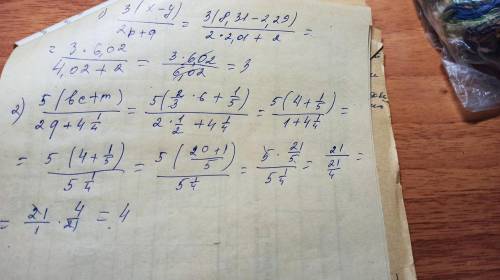 ) 3(x-y)/2p+q = 3(8,31-2,29)/2·2,01+2 =
= 3·6,02/4,02+2 = 3·6,02/6,02 = 3
2) 5(bc+m)/2q+4 1/4 = 5(2/3·6+1/5)/2·1/2+4 1/4 = 5(4+1/5)/1+4 1/4 =
= 5(4+1/5)/5 1/4 = 5(20+1/5)/5 1/4 = 5·21/5/5 1/4 = 21/21/4 =
= 21/1·4/21 = 4